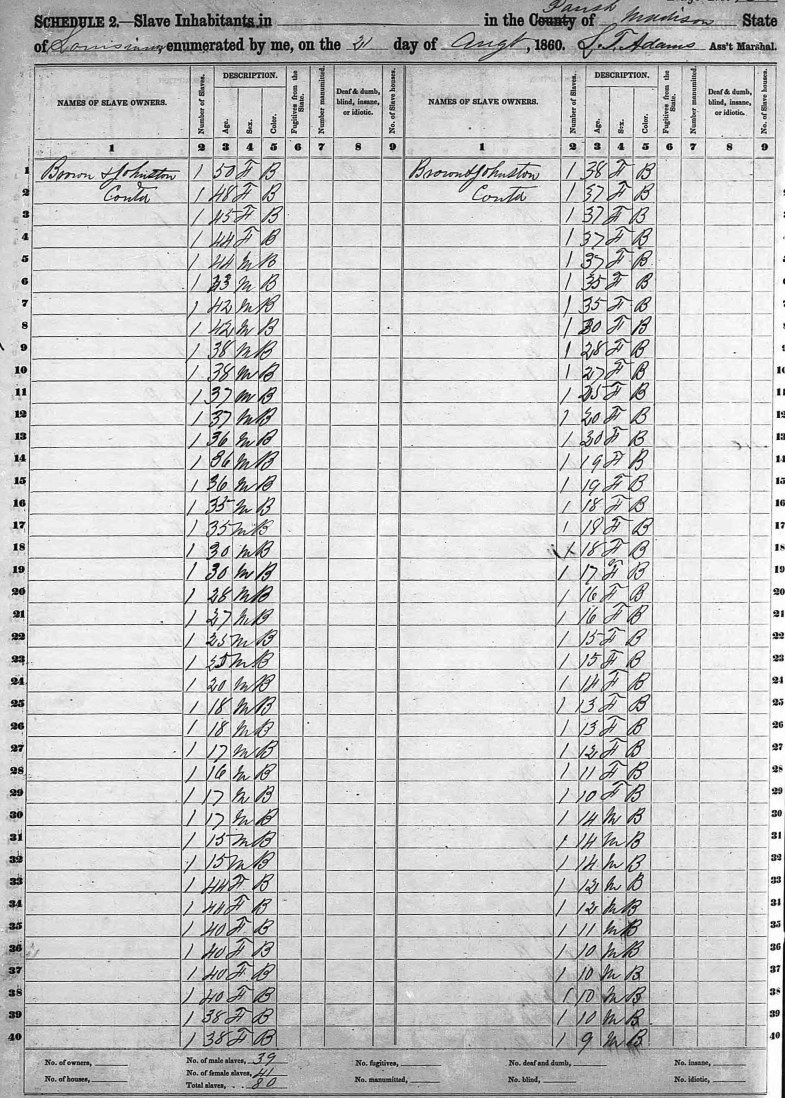 SCHEDULE 2.—Slave Inhabitants in in the County of Parish Madison State
of Louisiana enumerated by me, on the 21 day of Augt, 1860. S. T. Adams Ass't Marshal.
NAMES OF SLAVE OWNERS. Number of Slaves. DESCRIPTION. Age. Sex. Color. Fugitives from the State. Number manumitted. Deaf & dumb, blind, insane, or idiotic. No. of Slave houses. NAMES OF SLAVE OWNERS. Number of Slaves. DESCRIPTION. Age. Sex. Color. Fugitives from the State. Number manumitted. Deaf & dumb, blind, insane, or idiotic. No. of Slave houses.
1 2 3 4 5 6 7 8 9 1 2 3 4 5 6 7 8 9
1 Brown & Johnston 1 50 F B Brown & Johnston 1 38 F B 1
2 Contd 1 48 F B Contd 1 37 F B 2
3 1 45 F B 1 37 F B 3
4 1 44 F B 1 37 F B 4
5 1 44 M B 1 37 F B 5
6 1 43 M B 1 35 F B 6
7 1 42 M B 1 35 F B 7
8 1 42 M B 1 30 F B 8
9 1 38 M B 1 28 F B 9
10 1 38 M B 1 27 F B 10
11 1 37 M B 1 25 F B 11
12 1 37 M B 1 20 F B 12
13 1 36 M B 1 20 F B 13
14 1 36 M B 1 19 F B 14
15 1 36 M B 1 19 F B 15
16 1 35 M B 1 18 F B 16
17 1 35 M B 1 18 F B 17
18 1 30 M B 1 18 F B 18
19 1 30 M B 1 17 F B 19
20 1 28 M B 1 16 F B 20
21 1 27 M B 1 16 F B 21
22 1 25 M B 1 15 F B 22
23 1 25 M B 1 15 F B 23
24 1 20 M B 1 14 F B 24
25 1 18 M B 1 13 F B 25
26 1 18 M B 1 13 F B 26
27 1 17 M B 1 12 F B 27
28 1 16 M B 1 11 F B 28
29 1 17 M B 1 10 F B 29
30 1 17 M B 1 14 M B 30
31 1 15 M B 1 14 M B 31
32 1 15 M B 1 14 M B 32
33 1 44 F B 1 12 M B 33
34 1 44 F B 1 12 M B 34
35 1 40 F B 1 11 M B 35
36 1 40 F B 1 10 M B 36
37 1 40 F B 1 10 M B 37
38 1 40 F B 1 10 M B 38
39 1 38 F B 1 10 M B 39
40 1 38 F B 1 9 M B 40
No. of owners, No. of male slaves, 39 No. fugitives, No. deaf and dumb, No. insane,
No. of houses, No. of female slaves, 41 No. manumitted, No. blind, No. idiotic,
Total slaves, 80